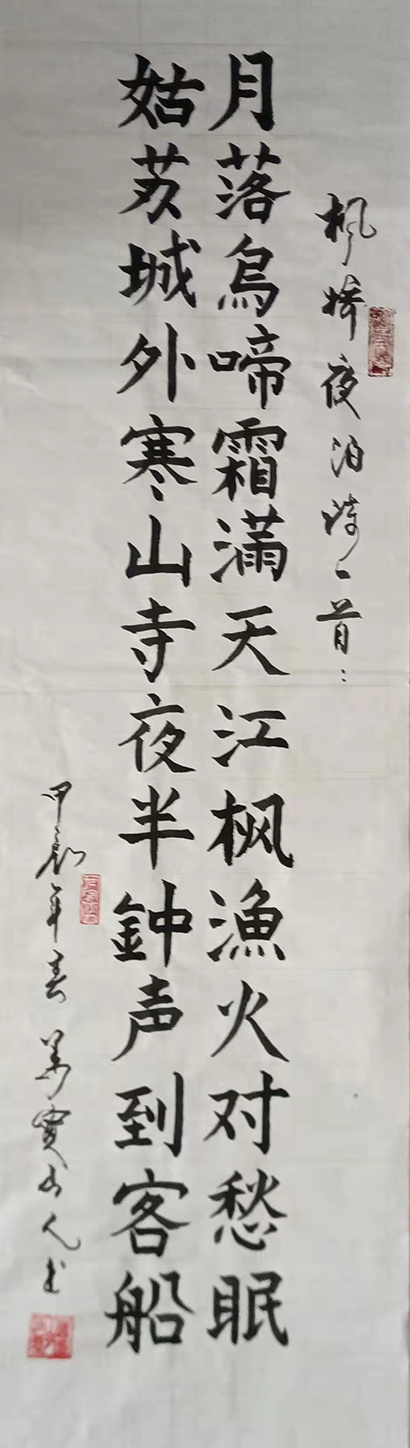 枫桥夜泊诗一首：
月落烏啼霜滿天江枫漁火对愁眠
姑苏城外寒山寺夜半鈡声到客船
甲辰年春 山人书